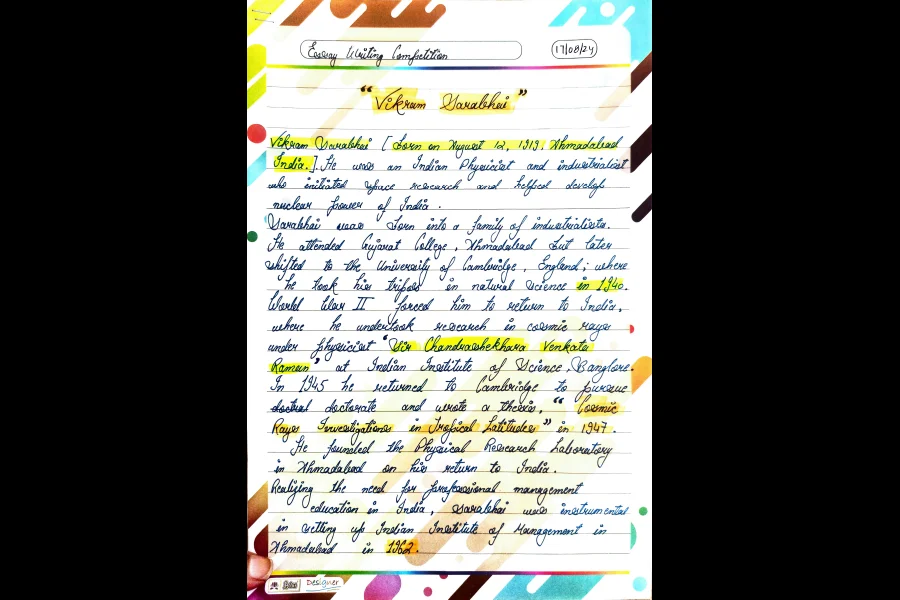 Essay Writing Competition
17/08/24
"Vikram Sarabhai"
Vikram Sarabhai [ born on August 12, 1919, Ahmadabad
India.]. He was an Indian Physicist and industrialist
who initiated space research and helped develop
nuclear power of India.
Sarabhai was born into a family of industrialists.
He attended Gujarat College, Ahmadabad but later
shifted to the University of Cambridge, England; where
he took his tripos in natural science in 1940.
World War II forced him to return to India,
where he undertook research in cosmic rays
under physicist "Sir Chandrashekhara Venkata
Raman" at Indian Institute of Science, Banglore.
In 1945 he returned to Cambridge to pursue
doctorate and wrote a thesis, "Cosmic
Rays Investigations in Tropical Latitudes" in 1947.
He founded the Physical Research Laboratory
in Ahmadabad on his return to India.
Realizing the need for professional management
education in India, Sarabhai was instrumental
in setting up Indian Institute of Management in
Ahmadabad in 1962.
Designer